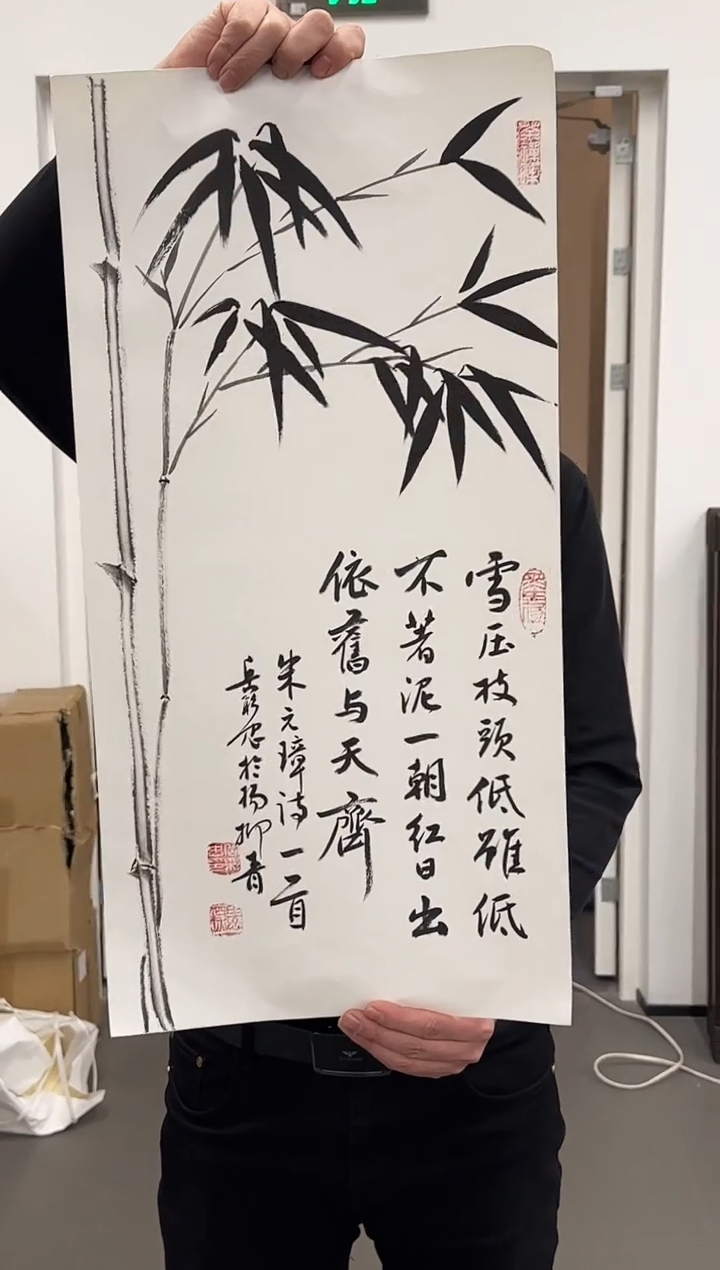 雪压枝头低雖低
不著泥一朝红日出
依舊与天齊
朱元璋诗一首
岳彩忠於杨柳青